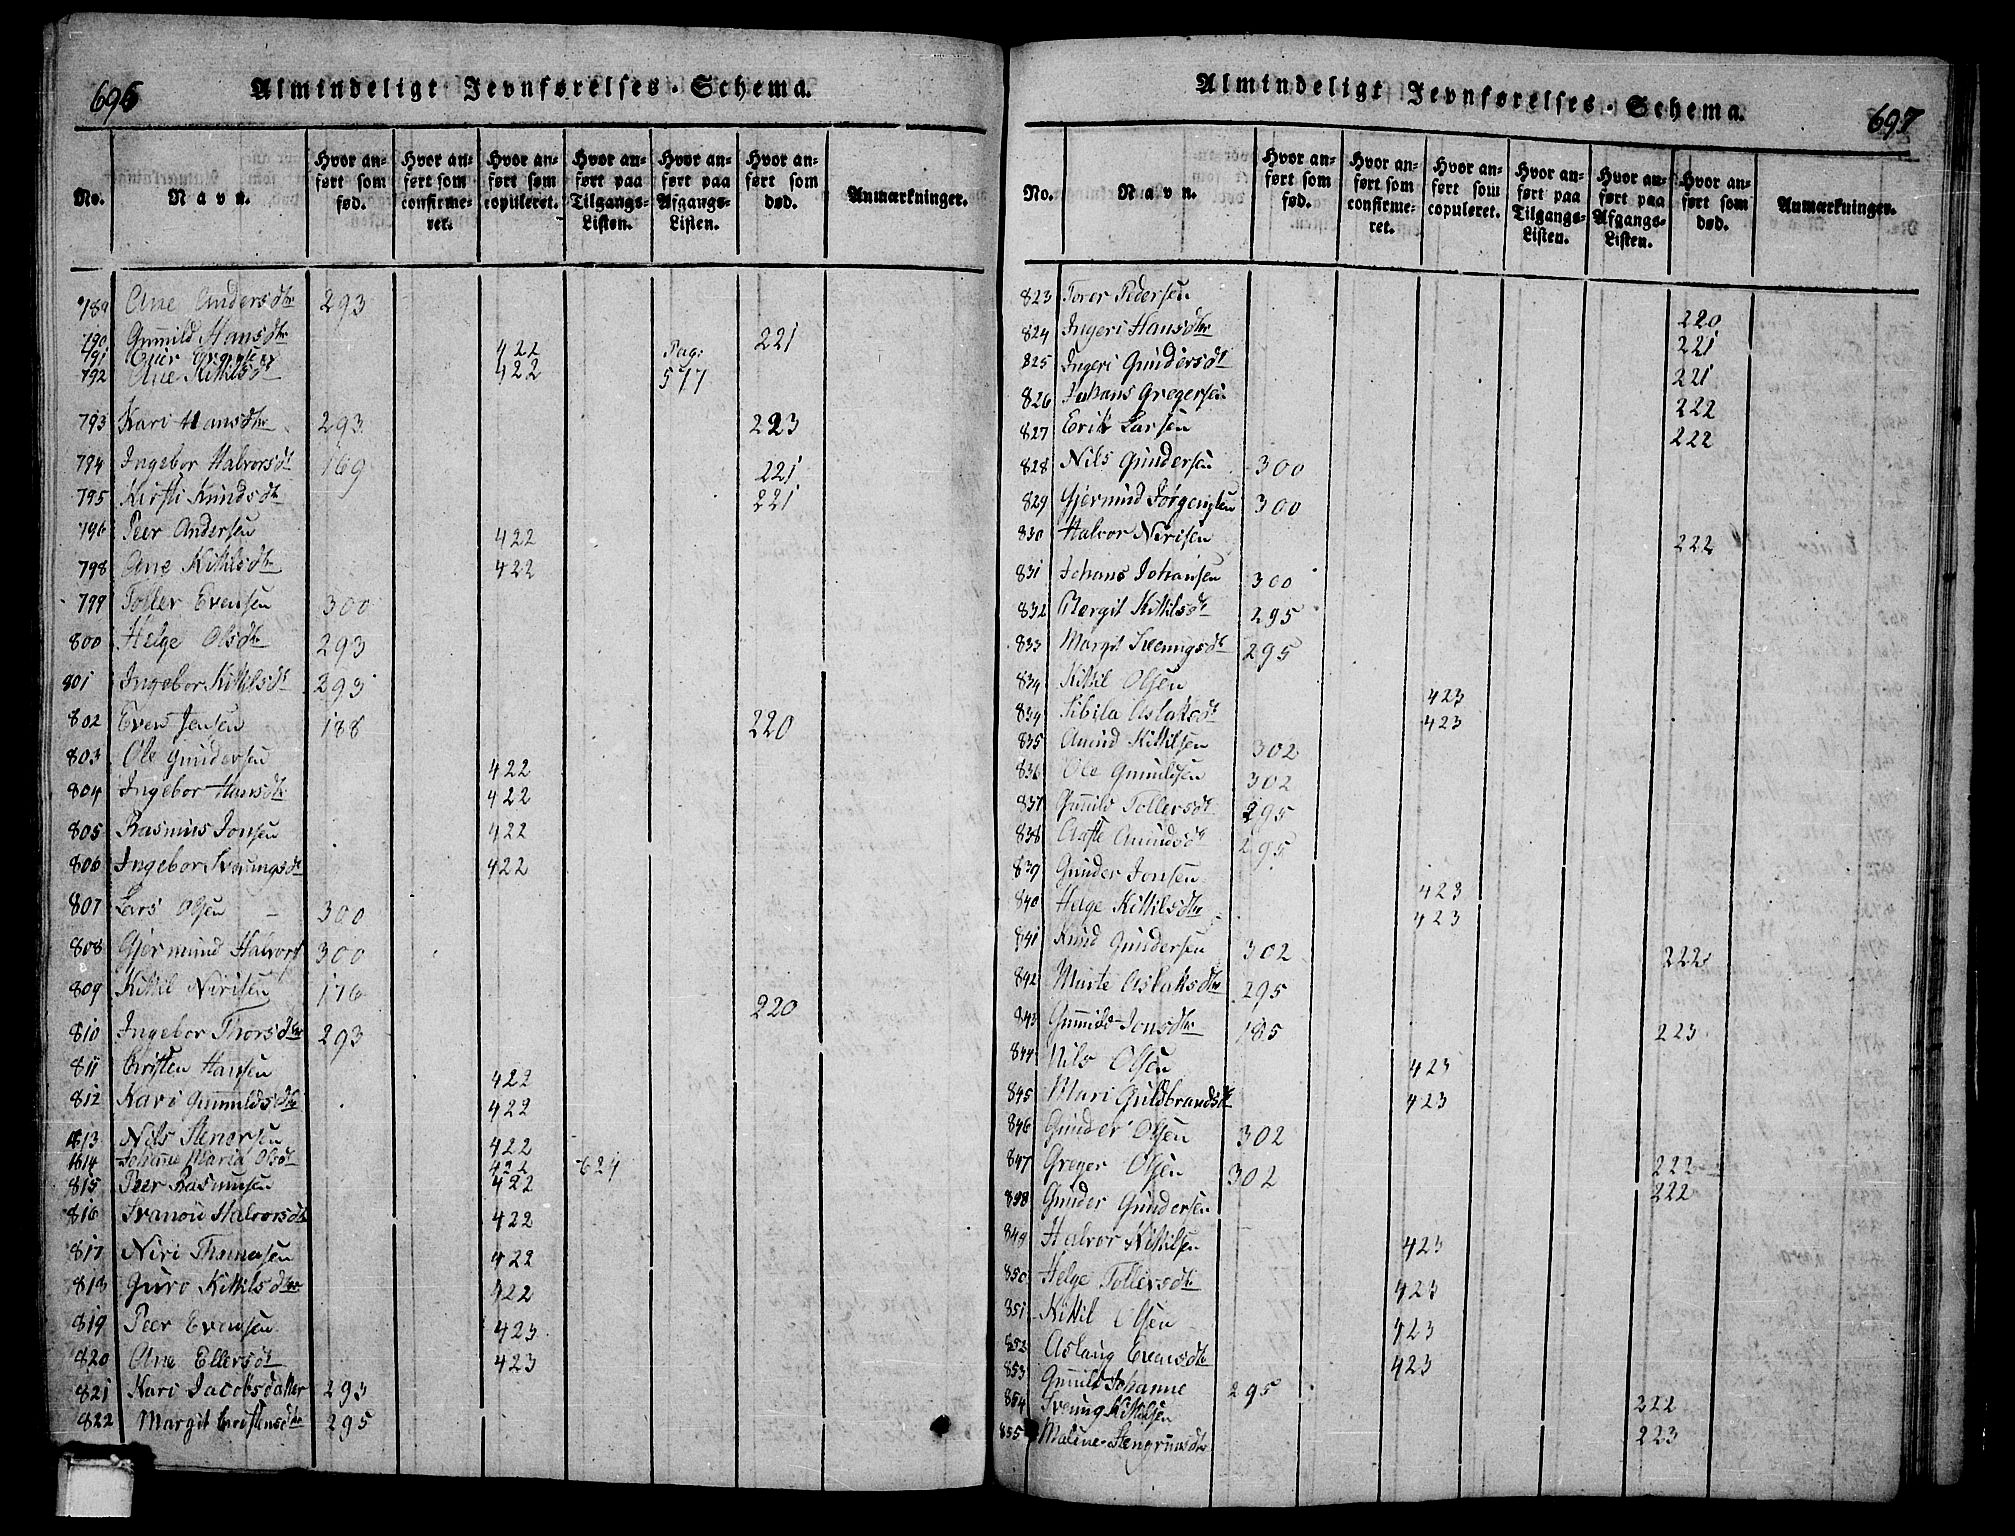 696
Almindeligt Jevnførelses-Schema.
No. Navn. Hvor anført som fød. Hvor anført som confirmeret. Hvor anført som copuleret. Hvor anført paa Tilgangs-Listen. Hvor anført paa Afgangs-Listen. Hvor anført som død. Anmærkninger.
789 Ane Andersdtr 293
790 Gunnild Hansdtr 221
791 422 Pag:
792 Ane Kittilsdt 422 577
793 Kari Hansdtr 293 223
794 Ingebor Halvorsdt 169 221
795 Kirsti Knudsdt 221
796 Peer Andersen 422
798 Ane Kittilsdtr 422
799 Toller Evensen 300
800 Helge Olsdtr 293
801 Ingebor Kittilsdt 293
802 Even Jensen 188 220
803 Ole Gundersen 422
804 Ingebor Hansdtr 422
805 Rasmus Jonsen 422
806 Ingebor Svenungsdt 422
807 Lars Olsen 300
808 Gjermund Halvors 300
809 Kittil Nirisen 176 220
810 Ingebor Thorsdtr 293
811 Christen Hansen 422
812 Kari Gunnuldsdtr 422
813 Nils Stenersen 422
814 Johanne Maria Olsdt 422 624
815 Peer Rasmusen 422
816 Svanou Halvorsdt 422
817 Niri Thomasen 422
818 Guro Kittilsdtr 422
819 Peer Evensen 423
820 Ane Ellersdt 423
821 Kari Jacobsdatter 293
822 Margit Christensdtr 295
Almindeligt Jevnførelses-Schema.
697
No. Navn. Hvor anført som fød. Hvor anført som confirmeret. Hvor anført som copuleret. Hvor anført paa Tilgangs-Listen. Hvor anført paa Afgangs-Listen. Hvor anført som død. Anmærkninger.
823 Torer Pedersen 220
824 Ingeri Hansdtr 221
825 Ingeri Gundersdt 221
826 Johans Gregersen 222
827 Erik Larsen 222
828 Nils Gundersen 300
829 Gjermund Jørgensen 300
830 Halvor Nirisen 222
831 Johans Johansen 300
832 Bergit Kittilsdtr 295
833 Margit Svenungsdt 295
834 Kittil Olsen 423
834 Sibila Aslaksdt 423
835 Amund Kittilsen 302
836 Ole Gunnulsen 302
837 Gunnild Tollersdt 295
838 Aaste Amundsdt 295
839 Gunder Jonsen 423
840 Helge Kittilsdtr 423
841 Knud Gundersen 302 222
842 Marte Aslaksdtr 295
843 Gunnild Jonsdtr 185 223
844 Nils Olsen 423
845 Mari Guldbrandsdt 423
846 Gunder Olsen 302
847 Greger Olsen 302 222
898 Gunder Gundersen 222
849 Halvor Kittilsen 423
850 Helge Tollersdtr 423
851 Kittil Olsen 423
852 Aslaug Evensdtr 423
853 Gunild Johanne 295
854 Svenung Kittilsen 222
855 Maline Stengrimsdtr 223